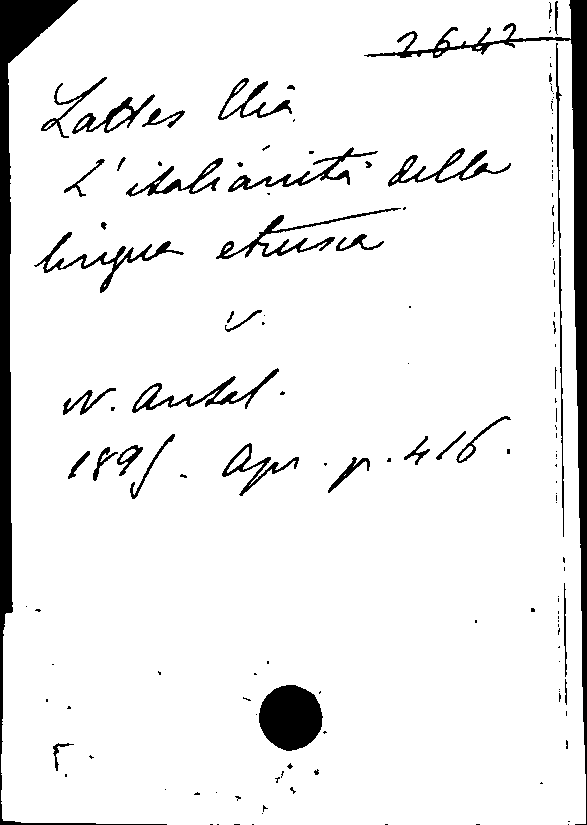 2.6.42
Lattes Elia
L'italianità della
lingua etrusca
v.
N. Antol.
1895. Apr. p. 416.